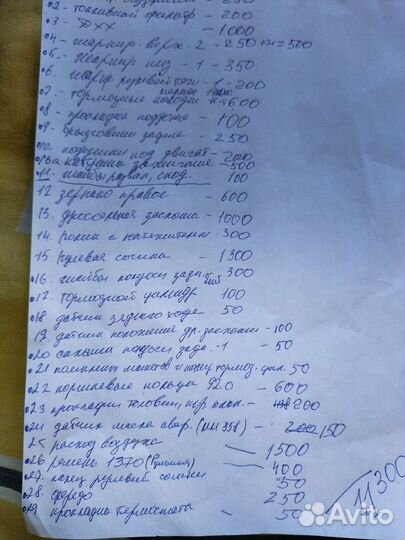 02 - топливный фильтр - 200
03 - ДХХ - 1000
04 - шарнир верх. 2 - 250 = 500
05 - шарнир низ - 1 - 350
06. рулевой тяги - 1 - 200
07 - тормозные колодки 600
08 - прокладка поддона - 100
09 - брызговики задние - 250
10 подушки под двигат - 200
10а катушка зажигания - 500
11 - шайбы развал, сход. 100
12 зеркало правое - 600
13. дроссельная заслонка - 1000
14. ролик с натяжителем 300
15 рулевая 1300
16. полуоси задн. 300
17. тормозной цилиндр 100
18 датчик заднего хода 50
19. датчик положения др. заслонки - 100
20 сальник полуоси задн. - 1 - 50
21 тормоз. 50
22 поршневые кольца 92.0 - 600
23 прокладки головки, - 200
24 датчик масла авар. (ММ 358) - 200 150
25 расход воздуха 1500
26 ремень 1370 (Румыния) - 400
27. палец рулевой 50
28. 250
29. прокладка термостата - 50
11300
Avito